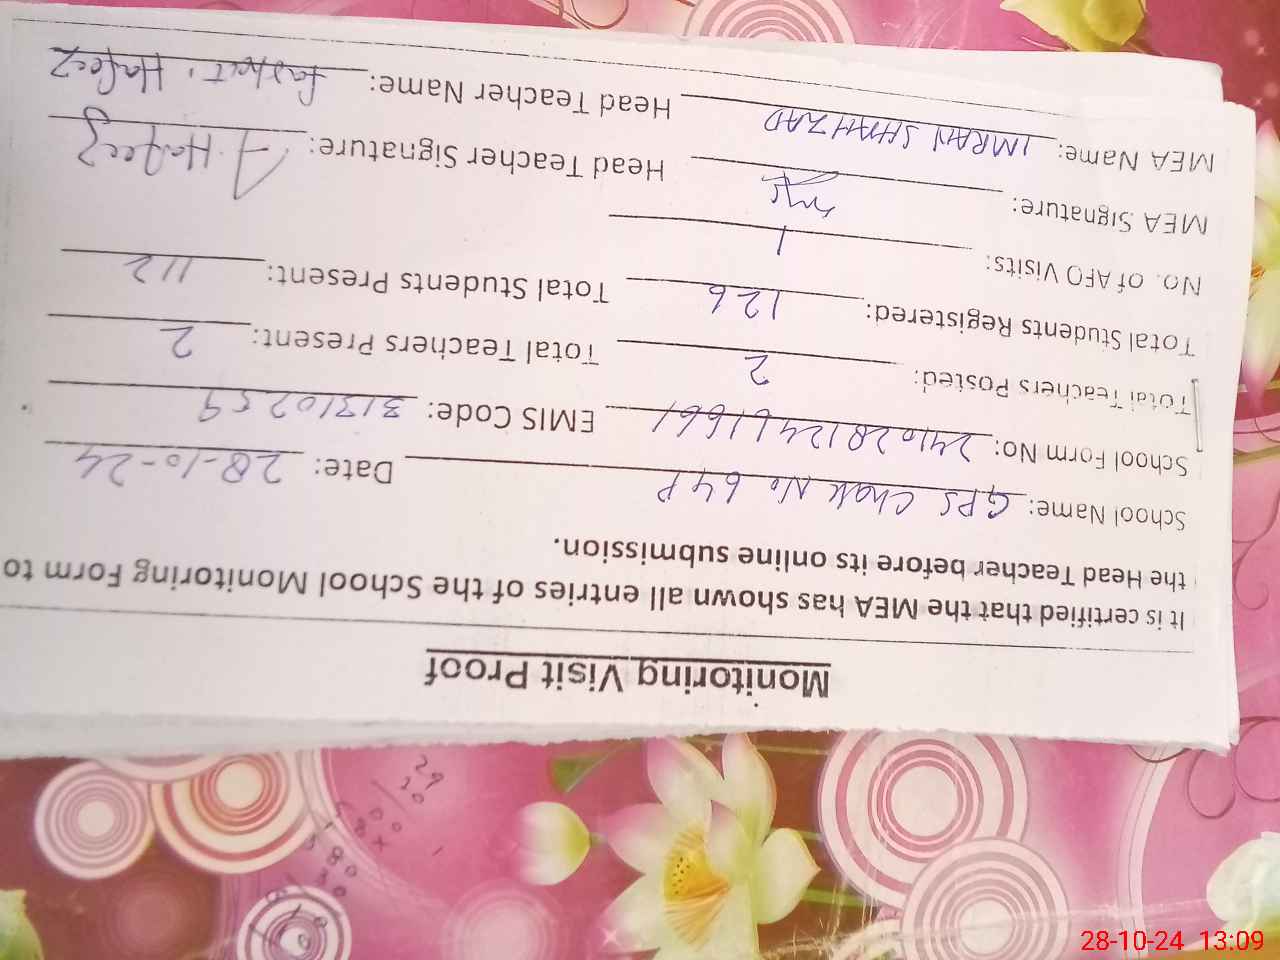 Monitoring Visit Proof
It is certified that the MEA has shown all entries of the School Monitoring Form to
the Head Teacher before its online submission.
School Name: GPS Chak No 64P Date: 28-10-24
School Form No: EMIS Code: 31310259
Total Teachers Posted: 2 Total Teachers Present: 2
Total Students Registered: 126 Total Students Present: 112
No. of AFO Visits: 1
MEA Signature: Head Teacher Signature: A. Hafeez
MEA Name: IMRAN SHAHZAD Head Teacher Name: Hafeez
28-10-24 13:09